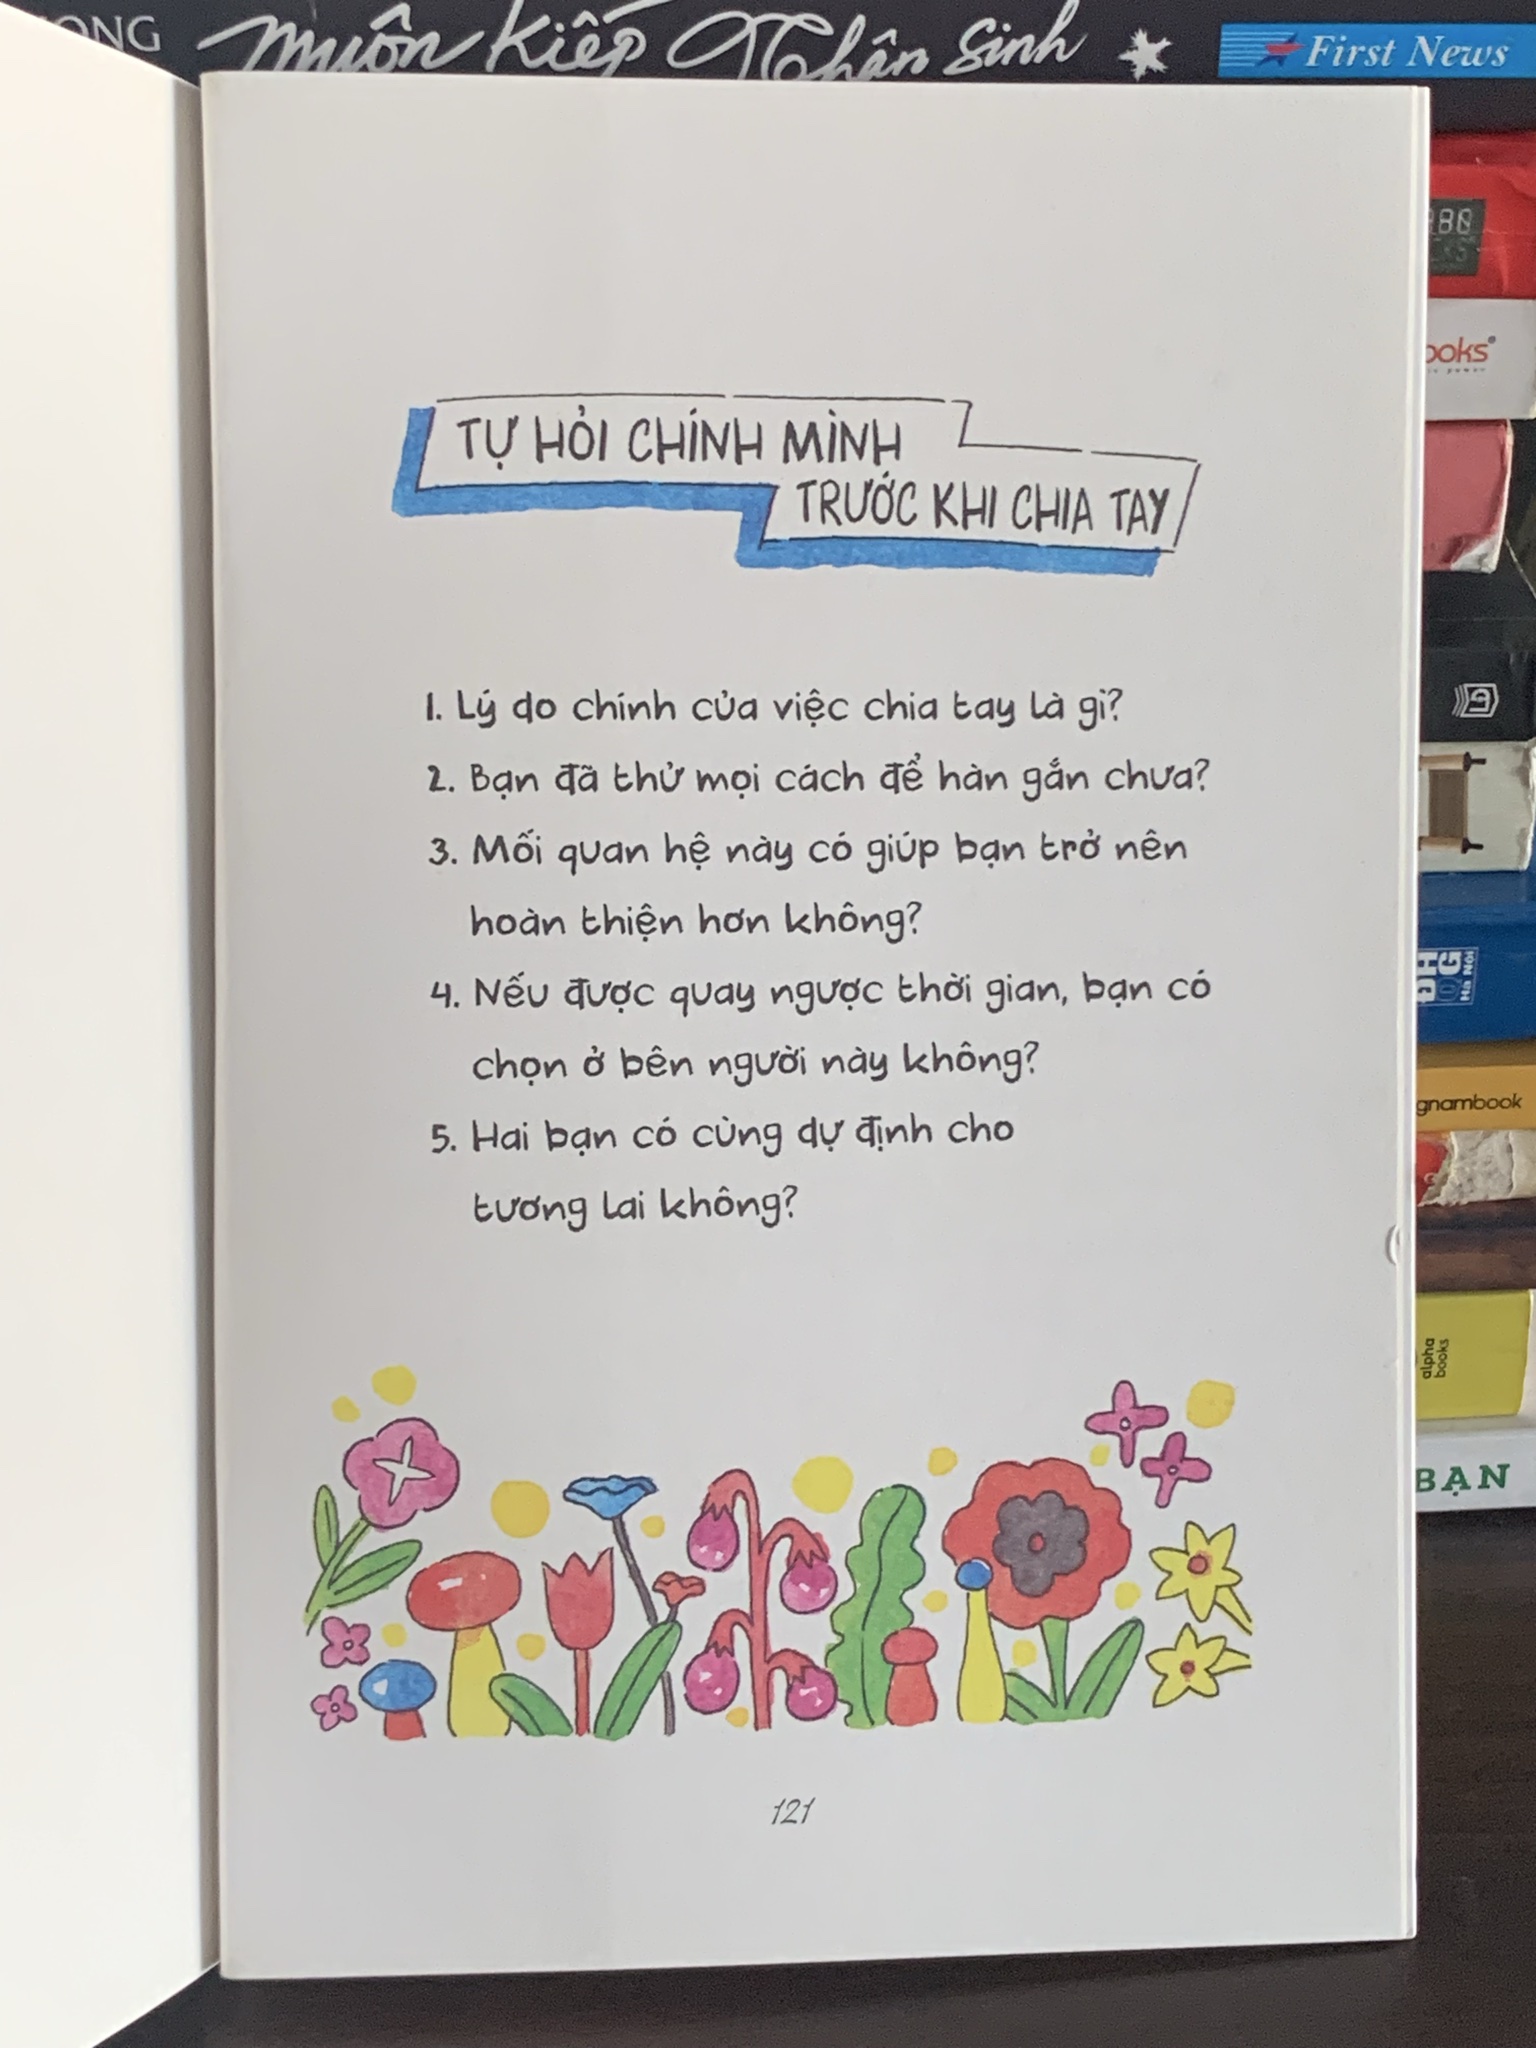 Muôn Kiếp Nhân Sinh
First News
TỰ HỎI CHÍNH MÌNH
TRƯỚC KHI CHIA TAY
1. Lý do chính của việc chia tay là gì?
2. Bạn đã thử mọi cách để hàn gắn chưa?
3. Mối quan hệ này có giúp bạn trở nên
hoàn thiện hơn không?
4. Nếu được quay ngược thời gian, bạn có
chọn ở bên người này không?
5. Hai bạn có cùng dự định cho
tương lai không?
121
ĐH
QG
HÀ NỘI
gnambook
alpha
books
BẠN